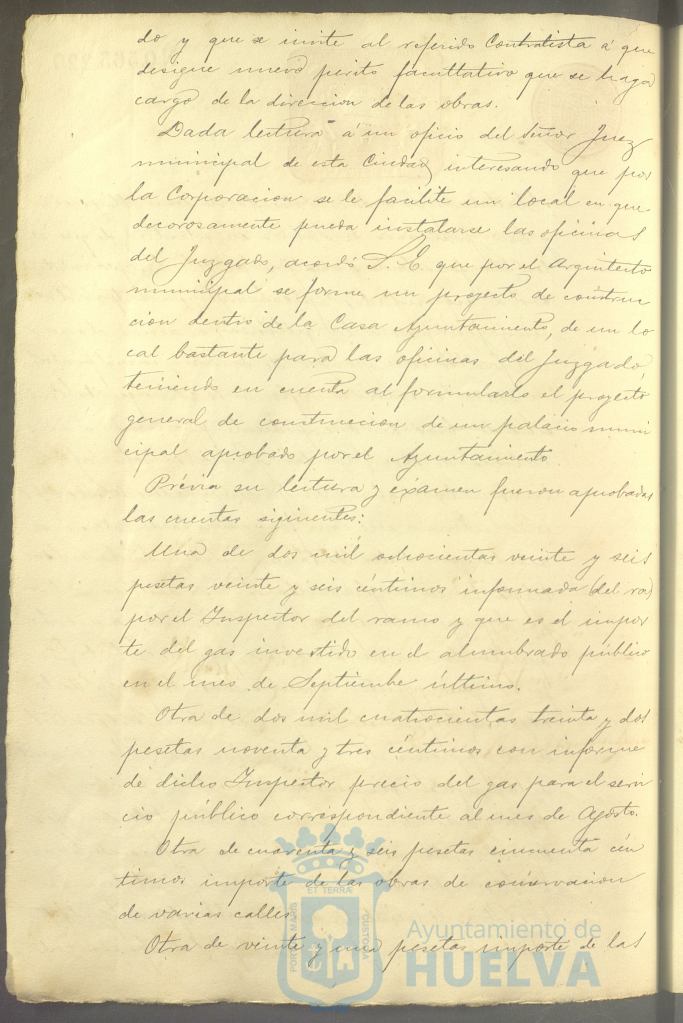 do y que se invite al referido Contratista á que
designe nuevo perito facultativo que se haga
cargo de la direccion de las obras.
Dada lectura á un oficio del Señor Juez
municipal de esta Ciudad, interesando que por
la Corporacion se le facilite un local en que
decorosamente pueda instalarse las oficinas
del Juzgado, acordó S. E. que por el Arquitecto
municipal se forme un proyecto de construc
cion dentro de la Casa Ayuntamiento, de un lo
cal bastante para las oficinas del Juzgado,
teniendo en cuenta al formularlo el proyecto
general de construccion de un palacio muni
cipal aprobado por el Ayuntamiento.
Prévia su lectura y exámen fueron aprobadas
las cuentas siguientes:
Una de dos mil ochocientas veinte y seis
pesetas veinte y seis céntimos informada
por el Inspector del ramo y que es el impor
te del gas invertido en el alumbrado público
en el mes de Septiembre último.
Otra de dos mil cuatrocientas treinta y dos
pesetas noventa y tres céntimos con informe
de dicho Inspector precio del gas para el servi
cio público correspondiente al mes de Agosto.
Otra de cuarenta y seis pesetas cincuenta cén
timos importe de las obras de conservacion
de varias calles.
Otra de veinte y una pesetas importe de las
ET TERRÆ
PORTUS MARIS
CUSTODIA
Ayuntamiento de
HUELVA